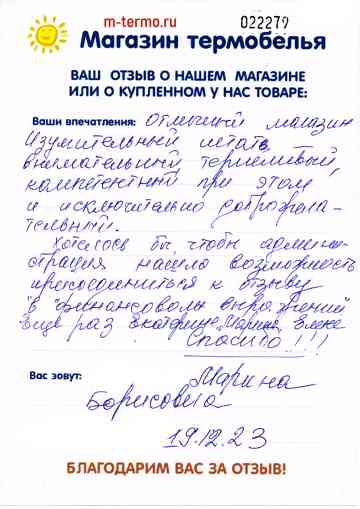 m-termo.ru
022279
Магазин термобелья
ВАШ ОТЗЫВ О НАШЕМ МАГАЗИНЕ
ИЛИ О КУПЛЕННОМ У НАС ТОВАРЕ:
Ваши впечатления: Отличный магазин
Изумительный штат –
внимательный, терпеливый,
компетентный при этом
и исключительно доброжела-
тельный.
Хотелось бы, чтобы админи-
страция нашла возможность
присоединиться к отзыву
в "финансовом выражении"
Еще раз Екатерине, Марине, Елене
Спасибо!!!
Вас зовут: Марина
Борисовна
19.12.23
БЛАГОДАРИМ ВАС ЗА ОТЗЫВ!